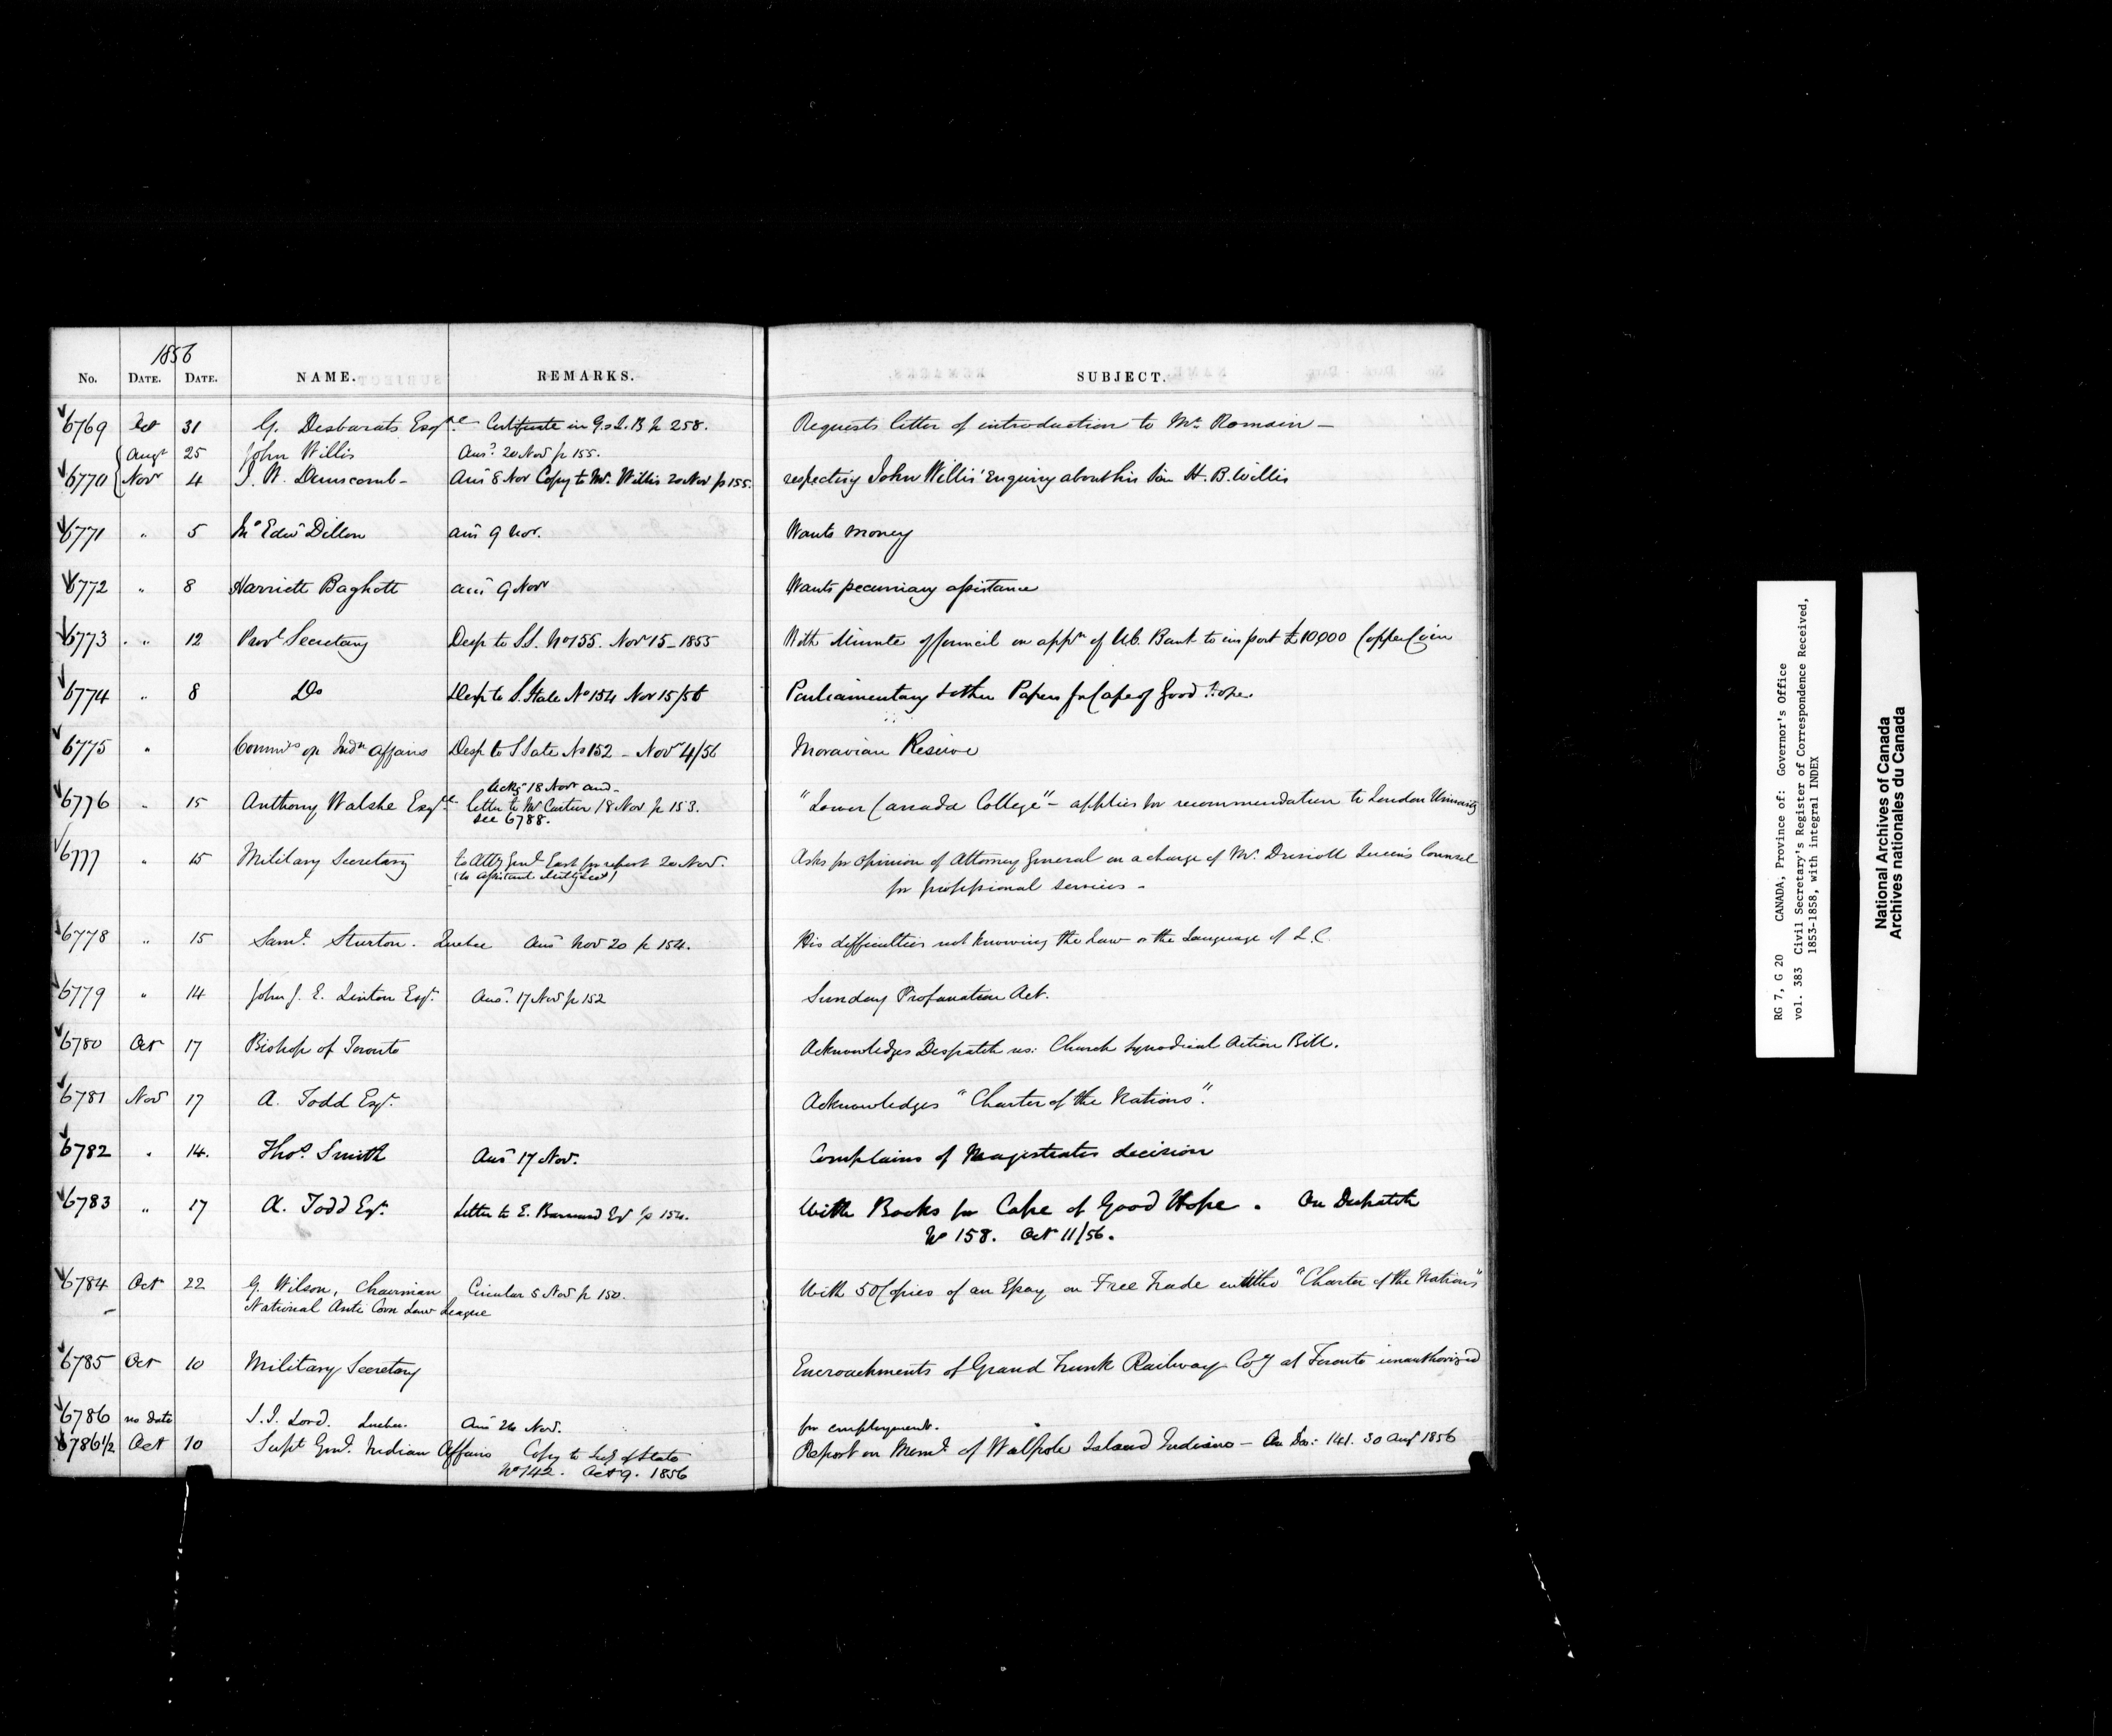 1856
No. DATE. DATE. NAME. REMARKS. SUBJECT.
6769 Oct 31 G. Desbarats Esqre Certificate in G.o L. B p 258. Requests letter of introduction to Mr. Romain —
Augt 25 John Willis Ansd 20 Nov p 155.
6770 Novr 4 J. W. Dunscomb - Ansd 8 Nov Copy to Mr. Willis 20 Nov p 155. respecting John Willis' Enquiry about his son H. B. Willis
6771 " 5 Edwd Dillon ansd 9 Nov. Wants Money
6772 " 8 Harriett Baghott ansd 9 Novr Wants pecuniary assistance
6773 " 12 Provl Secretary Desp to S.S. No 155. Novr 15 - 1855 With Minute of Council on appn of U.C. Bank to import £10,000 Copper Coin
6774 " 8 Do Desp to S. State No 154 Nov 15/56 Parliamentary & other Papers for Cape of Good Hope.
6775 " Commrs on Indn Affairs Desp to S State No 152 - Novr 4/56 Moravian Reserve
Ackg 18 Novr and -
6776 " 15 Anthony Walshe Esqre letter to Mr Cartier 18 Nov p 153. "Lower Canada College" - applies for recommendation to London University
see 6788.
6777 " 15 Military Secretary to Atty Genl East for report 20 Nov. Asks for opinion of Attorney General on a charge of Mr. Driscoll Queen's Counsel
(to assistant Milty Secy) for professional services -
6778 " 15 Saml. Sturton. Quebec Ansd Nov 20 p 154. His difficulties not knowing the Law or the Language of L.C.
6779 " 14 John J. E. Linton Esqr. Ansd. 17 Nov p 152 Sunday Profanation Act.
6780 Oct 17 Bishop of Toronto Acknowledges Despatch res: Church Synodical Action Bill.
6781 Nov 17 A. Todd Esqr. Acknowledges "Charter of the Nations".
6782 " 14. Thos. Smith Ansd 17 Nov. Complains of Magistrates decision
6783 " 17 A. Todd Esqr. Letter to E. Barnard Esq p 154. With Books for Cape of Good Hope. On Despatch
No 158. Oct 11/56.
6784 Oct 22 G. Wilson, Chairman Circular 5 Nov p 150. With 50 Copies of an Essay on Free Trade entitled "Charter of the Nations"
National Anti Corn Law League
6785 Oct 10 Military Secretary Encroachments of Grand Trunk Railway Coy at Toronto unauthorized
6786 no date Lord. Quebec. Ansd Nov. for employment.
6786 1/2 Oct 10 Supt Genl. Indian Affairs Copy to Secy of State Report on Meml. of Walpole Island Indians - On Des: 141. 30 Augt 1856
No 142. Oct 9. 1856
RG 7, G 20 CANADA, Province of: Governor's Office
vol. 383 Civil Secretary's Register of Correspondence Received,
1853-1858, with integral INDEX
National Archives of Canada
Archives nationales du Canada